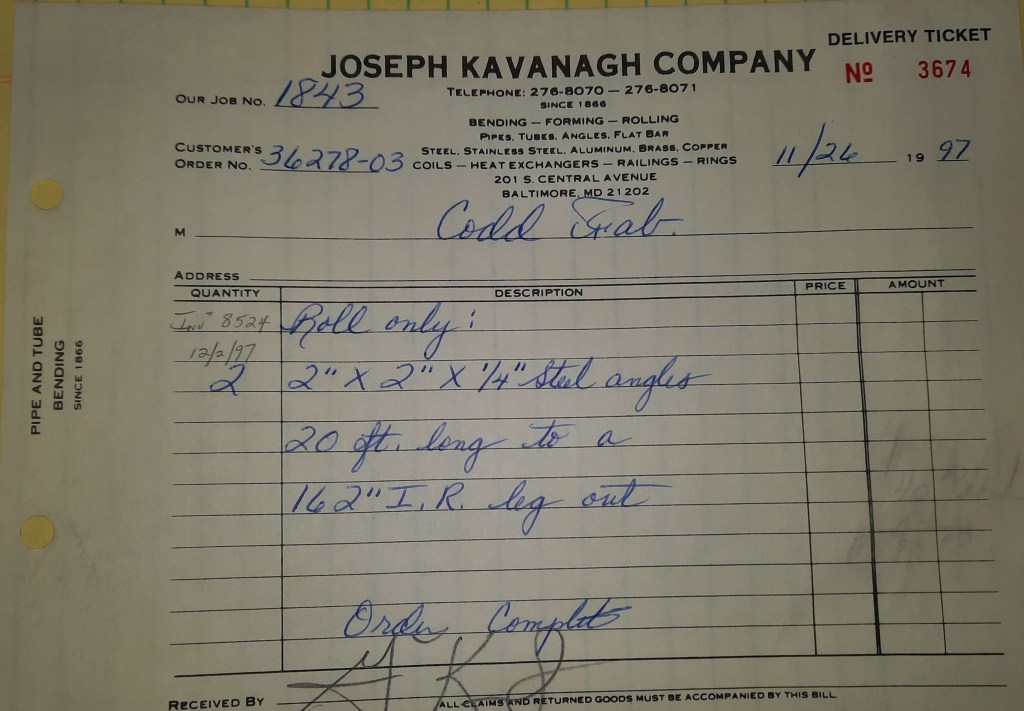 DELIVERY TICKET
JOSEPH KAVANAGH COMPANY
Nº 3674
OUR JOB NO. 1843
TELEPHONE: 276-8070 — 276-8071
SINCE 1866
BENDING — FORMING — ROLLING
PIPES, TUBES, ANGLES, FLAT BAR
CUSTOMER'S ORDER NO. 36278-03
STEEL, STAINLESS STEEL, ALUMINUM, BRASS, COPPER
COILS — HEAT EXCHANGERS — RAILINGS — RINGS
11/26 19 97
201 S. CENTRAL AVENUE
BALTIMORE, MD 21202
M Codd Fab.
ADDRESS
QUANTITY DESCRIPTION PRICE AMOUNT
Inv# 8524 Roll only:
12/2/97
2 2" X 2" X 1/4" Steel angles
20 ft. long to a
162" I.R. leg out
Order Complete
RECEIVED BY
ALL CLAIMS AND RETURNED GOODS MUST BE ACCOMPANIED BY THIS BILL
PIPE AND TUBE
BENDING
SINCE 1866